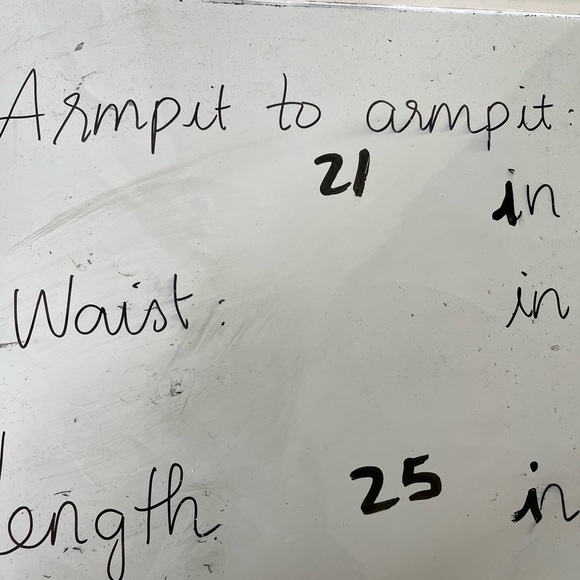 Armpit to armpit:
21 in
Waist: in
Length 25 in